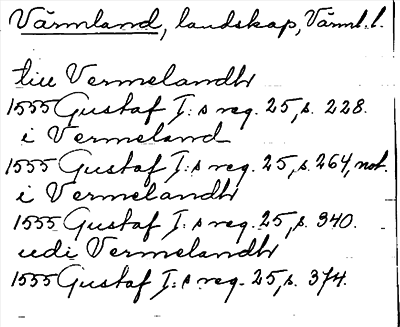 Värmland, landskap, Värml. l.
till Vermelandh
1555 Gustaf I:s reg. 25, s. 228.
i Vermeland
1555 Gustaf I:s reg. 25, s. 264, not.
i Vermelandh
1555 Gustaf I:s reg. 25, s. 340.
udi Vermelandh
1555 Gustaf I:s reg. 25, s. 374.